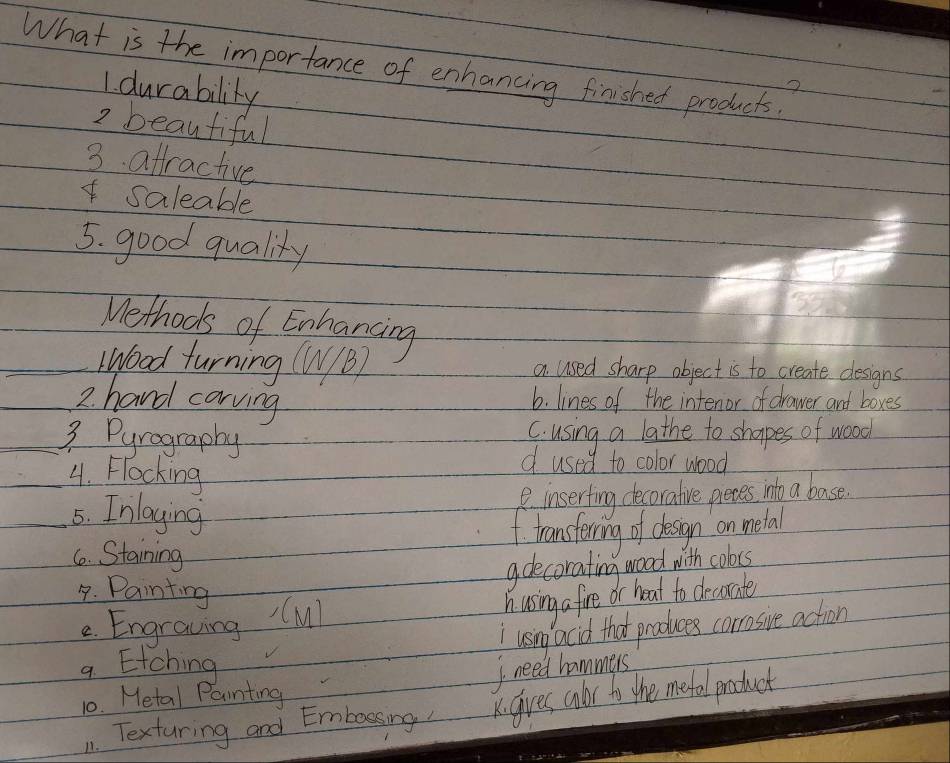 What is the importance of enhancing finished products?
1. durability
2 beautiful
3. attractive
4 saleable
5. good quality
Methods of Enhancing
1 Wood turning (W/B)
2. hand carving
3. Pyrography
4. Flocking
5. Inlaying
6. Staining
7. Painting
8. Engraving (M)
9. Etching
10. Metal Painting
11. Texturing and Embossing
a. used sharp object is to create designs
b. lines of the interior of drawer and boxes
c. using a lathe to shapes of wood
d. used to color wood
e. inserting decorative pieces into a base.
f. transferring of design on metal
g decorating wood with colors
h. using a fire or heat to decorate
i using acid that produces corrosive action
j. need hammers
k. gives color to the metal product